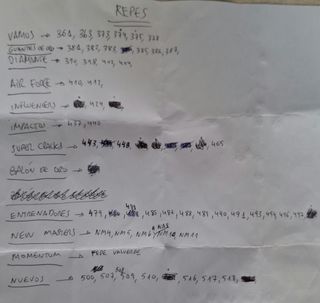 REPES
VAMOS → 361, 363, 373, 374, 375, 378
GUANTES DE ORO → 381, 383, 385, 386, 387,
DIAMANTE → 398, 403, 404
AIR FORCE → 410, 413,
INFLUENCERS → 424,
IMPACTOS → 437, 440
SUPER CRACKS → 443, 448, 465
BALÓN DE ORO →
ENTRENADORES → 479, 485, 487, 488, 489, 490, 491, 493, 494, 496, 497
NEW MASTERS → NM4, NM5, NM6, NM11
MOMENTUM → PEPE VALVERDE
NUEVOS → 500, 507, 509, 510, 516, 517, 518,